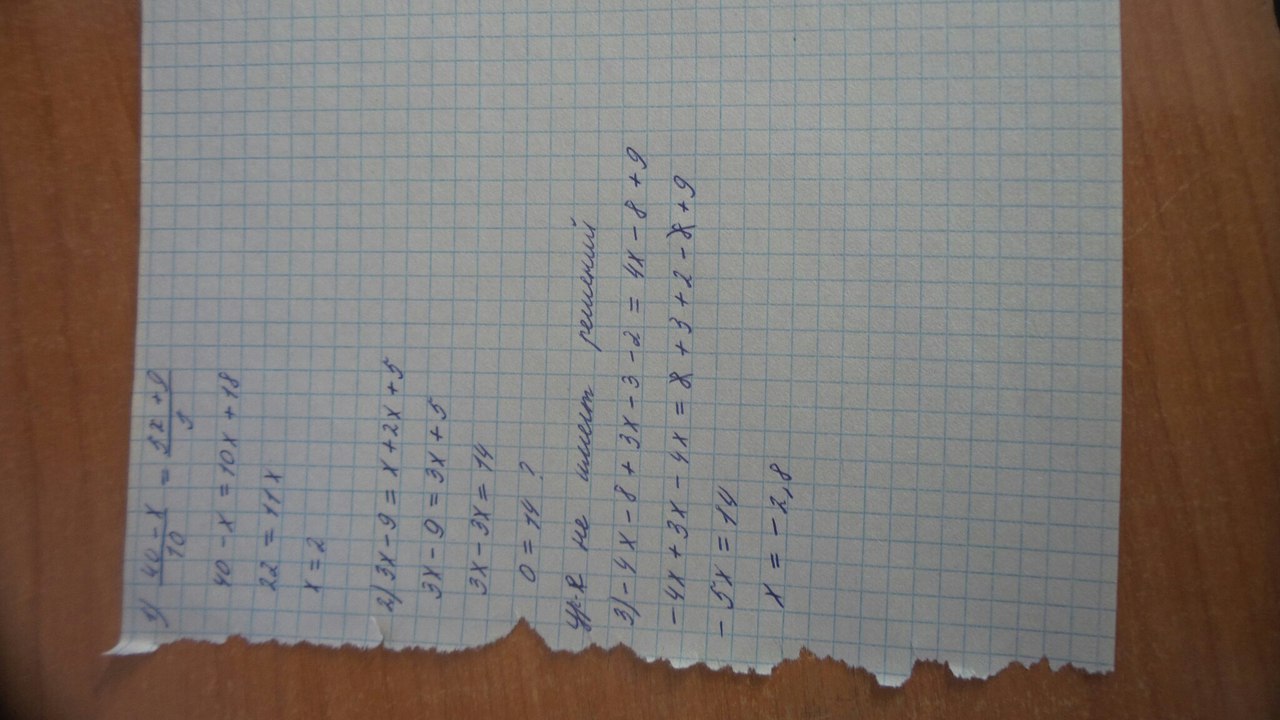 1) (40 - x)/10 = (5x + 9)/5
40 - x = 10x + 18
22 = 11x
x = 2
2) 3x - 9 = x + 2x + 5
3x - 9 = 3x + 5
3x - 3x = 14
0 = 14 ?
ур-е не имеет решений
3) - 4x - 8 + 3x - 3 - 2 = 4x - 8 + 9
- 4x + 3x - 4x = 8 + 3 + 2 - 8 + 9
- 5x = 14
x = - 2,8